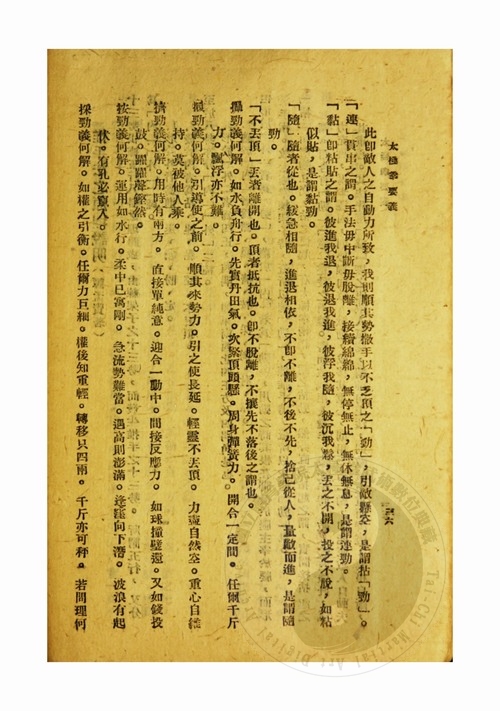 太極拳要義
三六
此即敵人之自動力所致，我則順其勢撒手以不丟頂之「勁」，引敵懸空，是謂拈「勁」。
「連」貫串之謂。手法毋中斷毋脫離，接續綿綿，無停無止，無休無息，是謂連勁。
「黏」即粘貼之謂。彼進我退，彼退我進，彼浮我隨，彼沉我鬆，丟之不開，投之不脫，如粘
似貼，是謂黏勁。
「隨」隨者從也。緩急相隨，進退相依，不即不離，不後不先，捨己從人，量敵而進，是謂隨
勁。
「不丟頂」丟者離開也。頂者抵抗也。即不脫離，不搶先不落後之謂也。
掤勁義何解。如水負舟行。先實丹田氣。次緊頂頭懸。周身彈簧力。開合一定間。任爾千斤
力。飄浮亦不難。
捋勁義何解。引導使之前。順其來勢力。引之使長延。輕靈不丟頂。力盡自然空。重心自維
持。莫被他人乘。
擠勁義何解。用時有兩方。直接單純意。迎合一動中。間接反應力。如球撞壁還。又如錢投
鼓。躍躍聲鏗然。
按勁義何解。運用如水行。柔中已寓剛。急流勢難當。遇高則澎滿。逢窪向下潛。波浪有起
伏。有孔必竄入。
採勁義何解。如權之引衡。任爾力巨細。權後知重輕。轉移只四兩。千斤亦可秤。若問理何